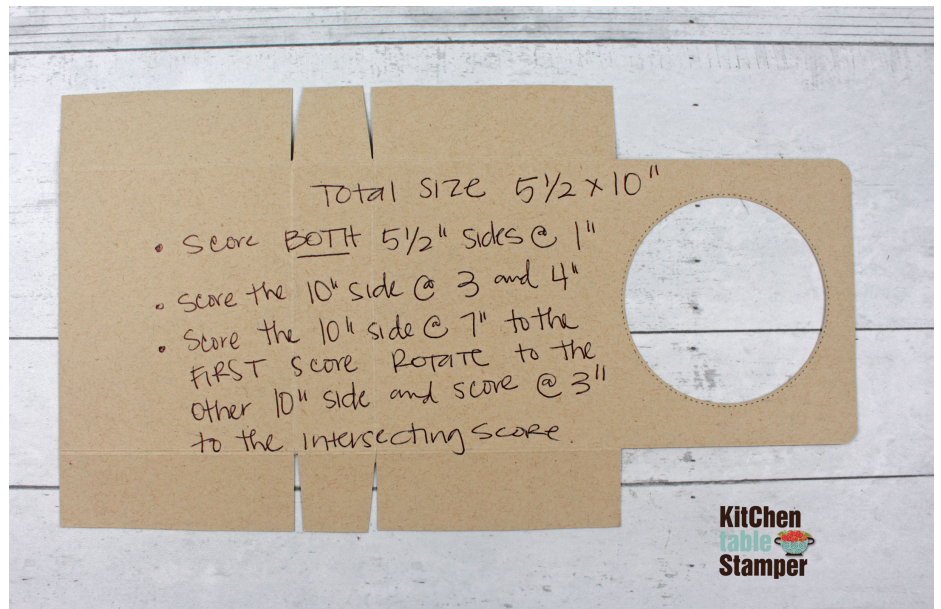 Total Size 5 1/2 x 10"
• Score BOTH 5 1/2" sides @ 1"
• Score the 10" side @ 3 and 4"
• Score the 10" side @ 7" to the
FIRST score ROTATE to the
other 10" side and score @ 3"
to the intersecting score.
KitChen
table
Stamper